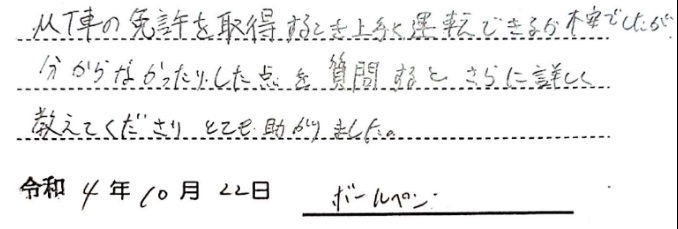 MT車の免許を取得するとき上手く運転できるか不安でしたが
分からなかったりした点を質問するとさらに詳しく
教えてくださりとても助かりました。
令和4年10月22日 ボールペン